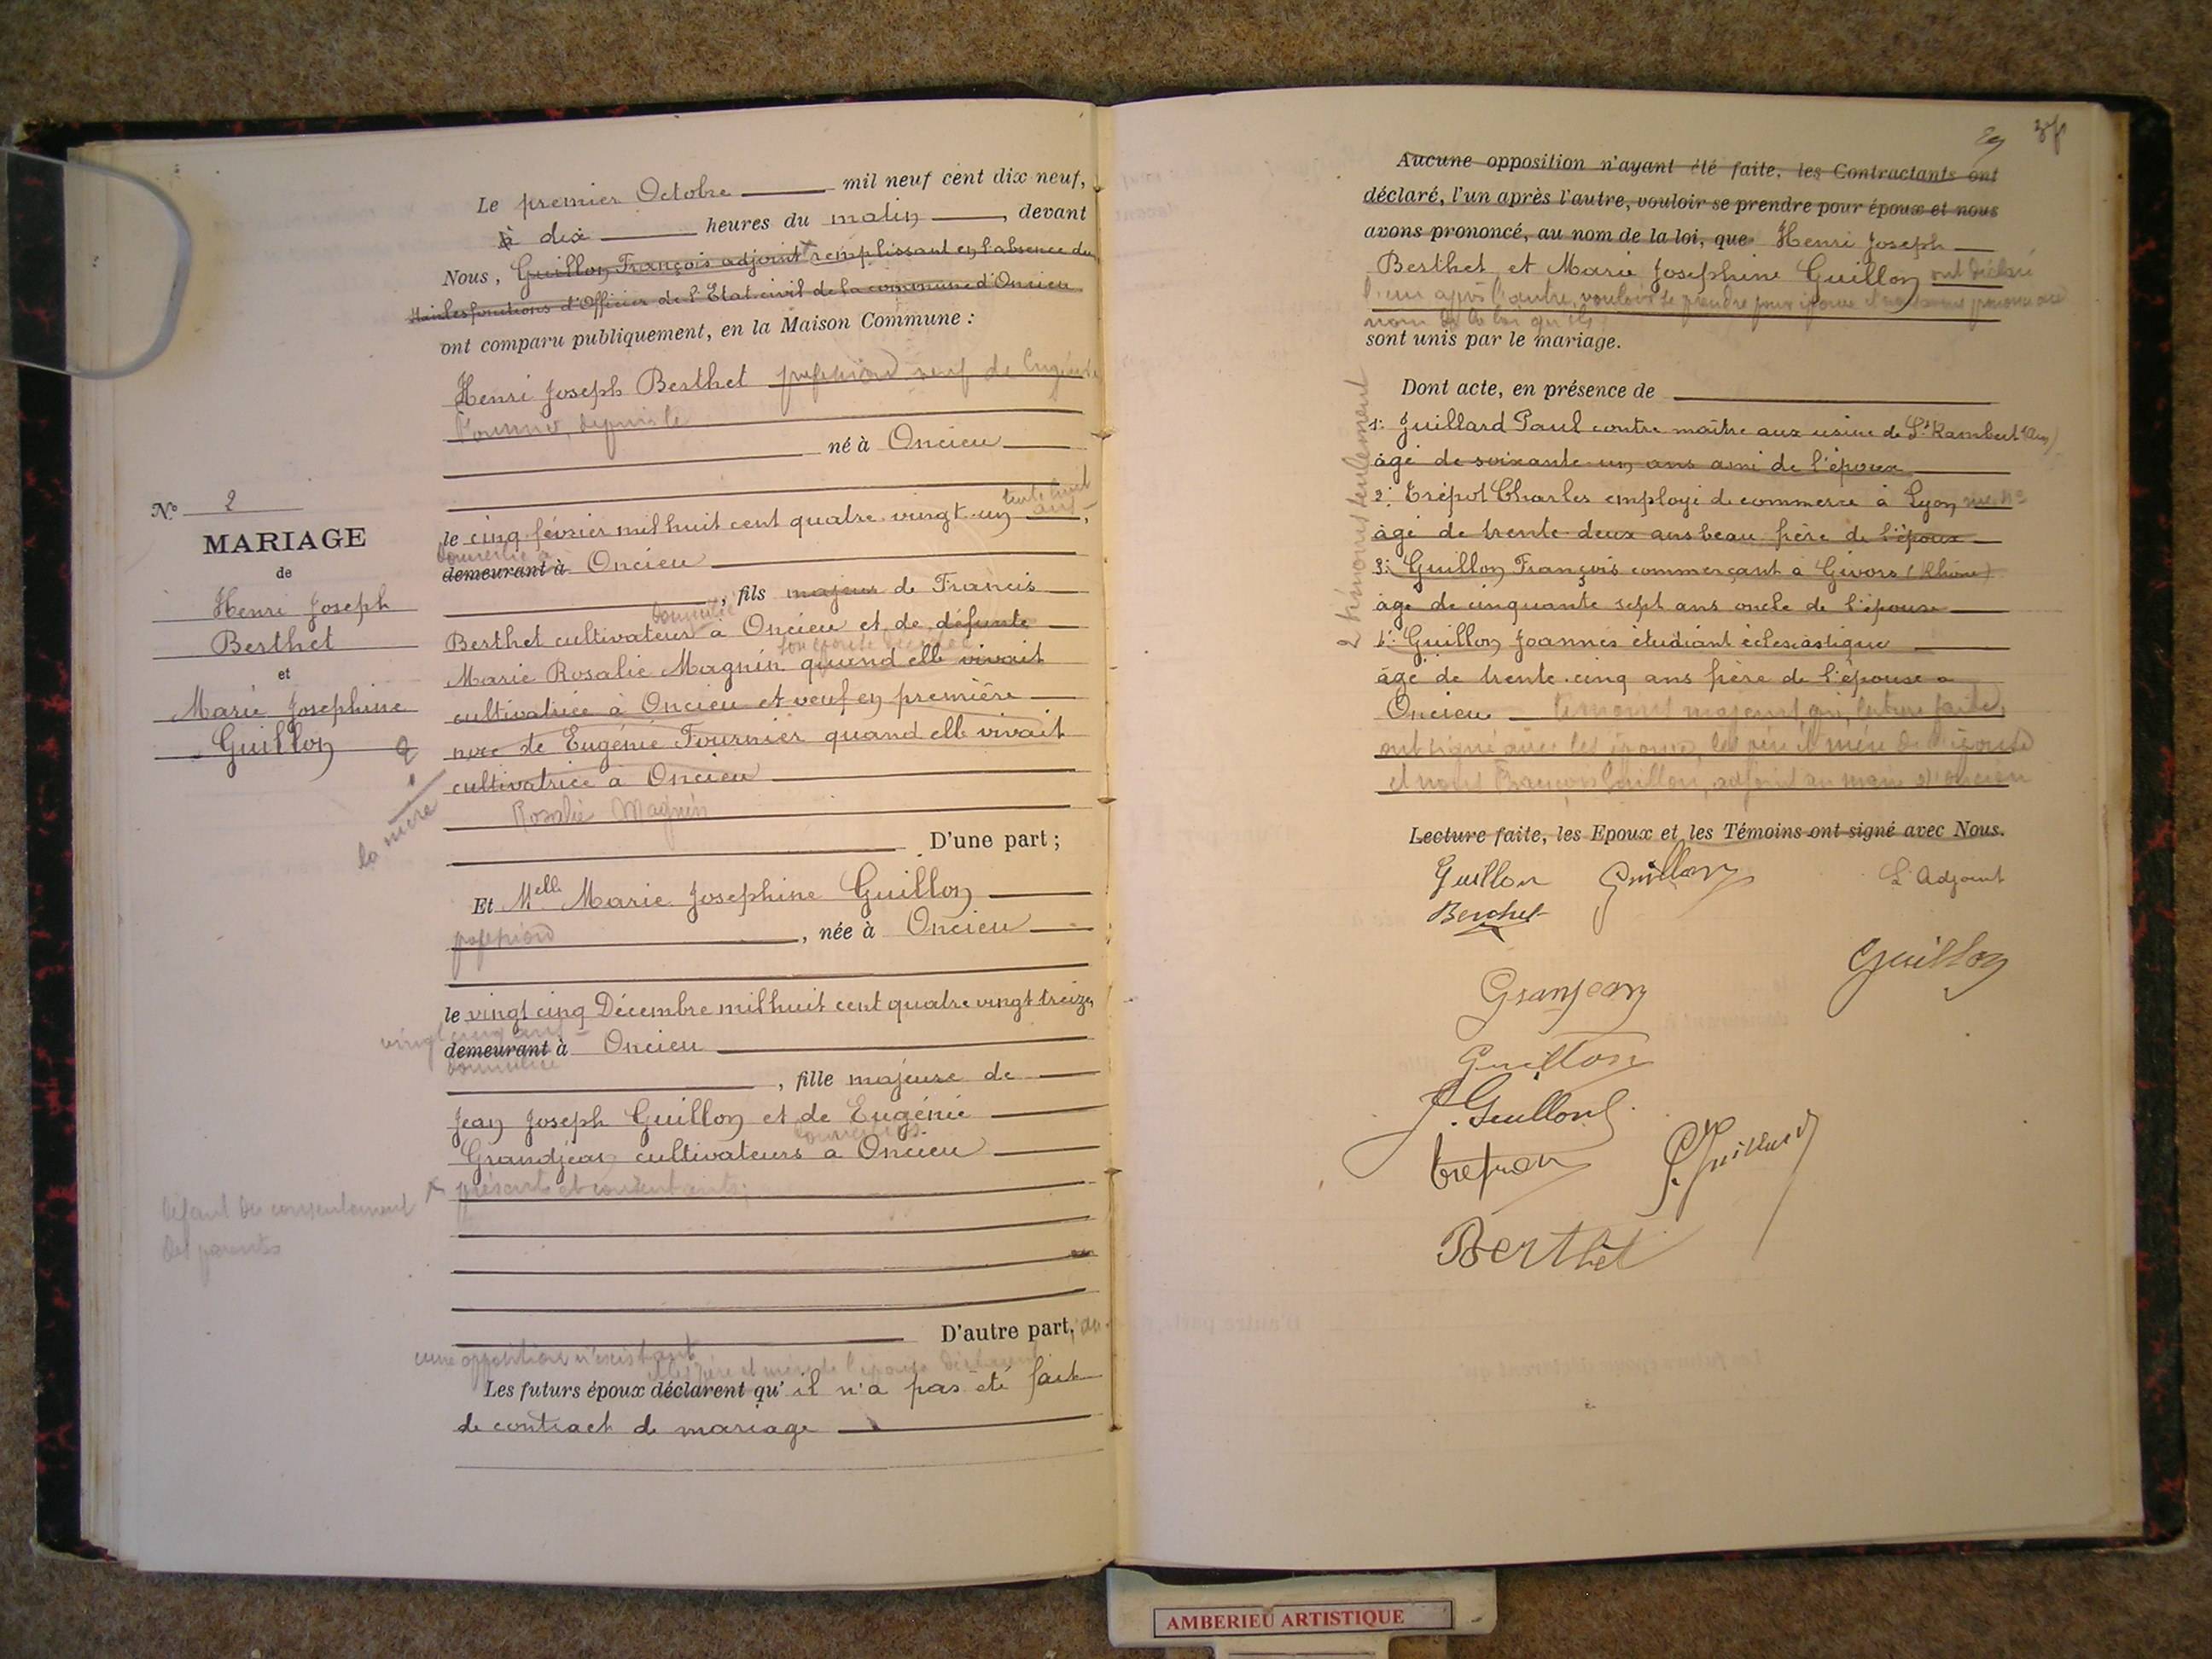 Le premier Octobre mil neuf cent dix neuf,
à dix heures du matin, devant
Nous, Guillon François adjoint remplissant en l'absence du
Maire les fonctions d'Officier de l'Etat civil de la commune d'Oncieu
ont comparu publiquement, en la Maison Commune :
Henri Joseph Berthet profession veuf de Eugénie
Fournier, depuis le
né à Oncieu
trente huit
ans
le cinq février mil huit cent quatre vingt-un,
domicilié à
demeurant à Oncieu
, fils majeur de Francis
domicilié
Berthet cultivateur à Oncieu et de défunte
son épouse décédée
Marie Rosalie Magnin quand elle vivait
cultivatrice à Oncieu et veuf en première
noce de Eugénie Fournier quand elle vivait
cultivatrice à Oncieu
Rosalie Magnin
la mère
D'une part ;
N° 2
MARIAGE
de
Henri Joseph
Berthet
et
Marie Josephine
Guillon
Et Melle Marie Josephine Guillon
profession, née à Oncieu
le vingt cinq Décembre mil huit cent quatre vingt treize,
vingt cinq ans
demeurant à Oncieu
domiciliée
, fille majeure de
Jean Joseph Guillon et de Eugénie
domiciliés
Grandjean cultivateurs à Oncieu
présents et consentants;
défaut du consentement
des parents
D'autre part, au
cune opposition n'existant
et les père et mère de l'épouse déclarent
Les futurs époux déclarent qu'il n'a pas été fait
de contract de mariage
29 37
Aucune opposition n'ayant été faite, les Contractants ont
déclaré, l'un après l'autre, vouloir se prendre pour époux et nous
avons prononcé, au nom de la loi, que Henri Joseph
Berthet et Marie Josephine Guillon ont déclaré
l'un après l'autre, vouloir se prendre pour époux et nous avons prononcé au
nom de la loi qu'ils
sont unis par le mariage.
Dont acte, en présence de
2 témoins seulement
1: Juillard Paul contre maître aux usine de St Rambert (Ain)
âgé de soixante un ans ami de l'époux
2: Trépot Charles employé de commerce à Lyon rue No
âgé de trente-deux ans beau frère de l'époux
3: Guillon François commerçant à Givors (Rhône)
âgé de cinquante sept ans oncle de l'épouse
4: Guillon Joannes étudiant éclesiastique
âgé de trente-cinq ans frère de l'épouse à
Oncieu témoins majeurs, qui, lecture faite,
ont signé avec les époux, les père et mère de l'épouse
et nous François Guillon, adjoint au maire d'Oncieu
Lecture faite, les Epoux et les Témoins ont signé avec Nous.
Guillon Guillon L'Adjoint
Berthet
Guillon
Granjean
Guillon
J. Guillon
Berthet
AMBERIEU ARTISTIQUE